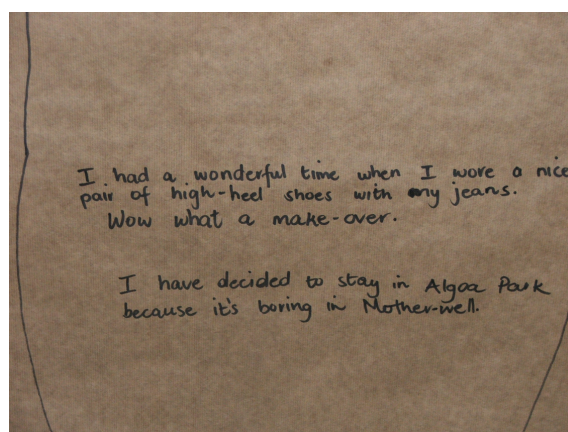 I had a wonderful time when I wore a nice
pair of high-heel shoes with my jeans.
Wow what a make-over.
I have decided to stay in Algoa Park
because it's boring in Mother-well.